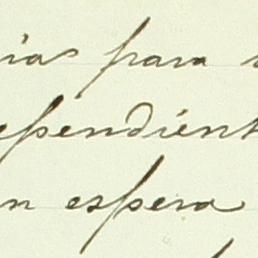 ias para
ependient
n espera